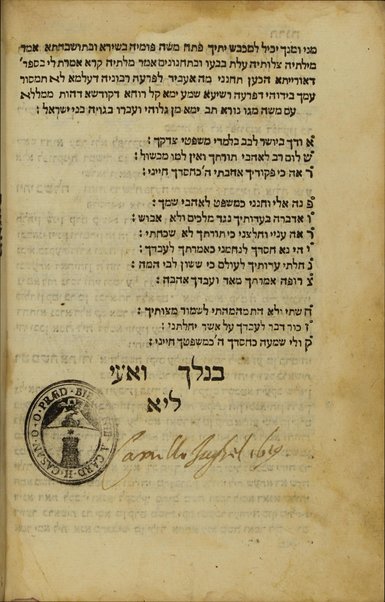 מני ומנך יכיל למכבש יתיך פתח משה פומיה בשירא ובתושבחתא אמר
מילתיה צלותיה עלת בבעו ובתחנונים אמר מלתיה קרא אמרת לי בספר'
דאורייתא הכען תחנני מה אעביד לפרעה רבוניה דעלמא לא תמסור
עמך בידוהי דפרעה רשיעא שמע ימא קל רוחא דקודשא דהות ממללא
עם משה מגו נורא תב ימא מן גלוהי ועברו בגויה בני ישראל :
א ודך ביושר לבב בלמדי משפטי צדקך :
ש לום רב לאהבי תורתך ואין למו מכשול :
ר אה כי פקודיך אהבתי ה' כחסדך חייני :
פ נה אלי וחנני כמשפט לאהבי שמך :
ו אדברה בעדותיך נגד מלכים ולא אבוש :
ר אה עניי וחלצני כי תורתך לא שכחתי :
י הי נא חסדך לנחמני כאמרתך לעבדך :
נ חלתי עדותיך לעולם כי ששון לבי המה :
צ רופה אמרתך מאד ועבדך אהבה :
ח שתי ולא התמהמהתי לשמור מצותיך :
ז כור דבר לעבדך על אשר יחלתני :
ק ולי שמעה כחסדך ה' כמשפטך חייני :
בנלך ואעי
ליא
Camillo Jaghel 1619